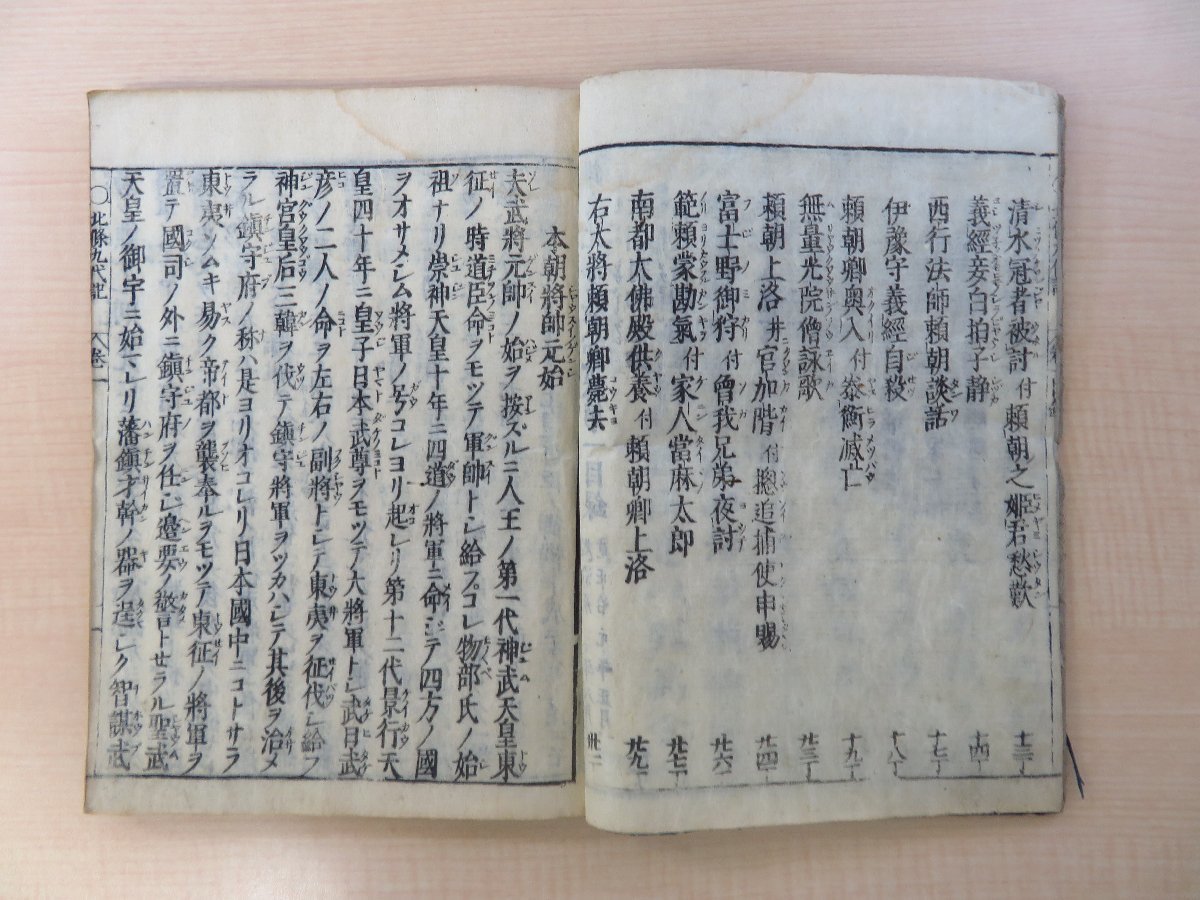 清水冠者被討 付 頼朝之姫君愁歎 十三丁
義經妾白拍子靜 十四丁
西行法師頼朝談話 十七丁
伊豫守義經自殺 十八丁
頼朝卿奥入 付 泰衡滅亡 十九丁
無量光院僧詠歌 廿三丁
頼朝上洛 并 官加階 付 摠追捕使申賜 廿四丁
富士野御狩 付 曾我兄弟夜討 廿六丁
範頼蒙勘氣 付 家人當麻太郎 廿七丁
南都大佛殿供養 付 頼朝卿上洛 廿九丁
右大將頼朝卿薨去
本朝將帥元始
夫武將元帥ノ始ヲ按ズルニ人王ノ第一代神武天皇東
征ノ時道臣命ヲモツテ軍帥トシ給フコレ物部氏ノ始
祖ナリ崇神天皇十年ニ四道ノ將軍ニ命ジテ四方ノ國
ヲオサメシム將軍ノ号コレヨリ起レリ第十二代景行天
皇四十年ニ皇子日本武尊ヲモツテ大將軍トシ武日武
彦ノ二人ノ命ヲ左右ノ副將トシテ東夷ヲ征伐シ給フ
神宮皇后三韓ヲ伐テ鎮守將軍ヲツカハシテ其後ヲ治メ
ラル鎮守府ノ称ハ是ヨリオコレリ日本國中ニコトサラ
東夷ソムキ易ク帝都ヲ襲奉ルヲモツテ東征ノ將軍ヲ
置テ國司ノ外ニ鎮守府ヲ任ジ邊要ノ警トセラル聖武
天皇ノ御宇ニ始マレリ藩鎮才幹ノ器ヲ逞シク智謀武
〇北條九代記 卷一